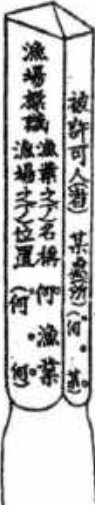 被許可人(者) 某處所(何。某)
漁場標識
漁業之(ノ)名稱 何漁業
漁場之(ノ)位置(何。何)